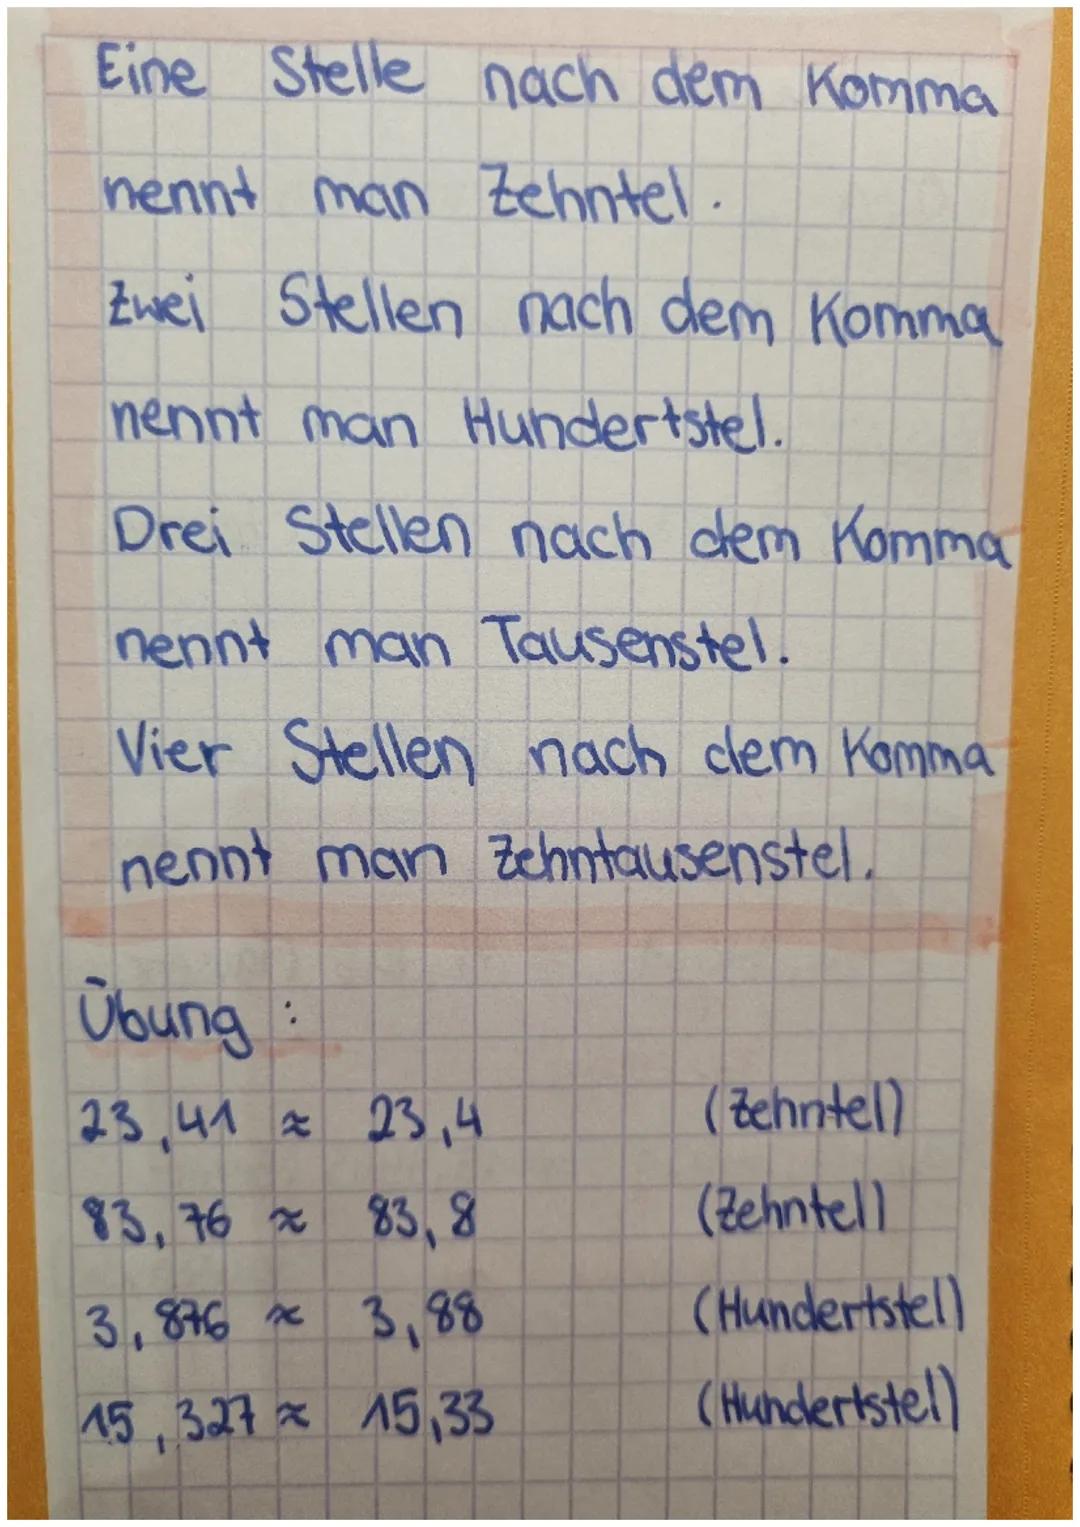 Eine Stelle nach dem Komma
nennt man Zehntel.
Zwei Stellen nach dem Komma
nennt man Hundertstel.
Drei Stellen nach dem Komma
nennt man Tausenstel.
Vier Stellen nach dem Komma
nennt man Zehntausenstel.
Übung :
23,41 ≈ 23,4 (Zehntel)
83,76 ≈ 83,8 (Zehntel)
3,876 ≈ 3,88 (Hundertstel)
15,327 ≈ 15,33 (Hundertstel)